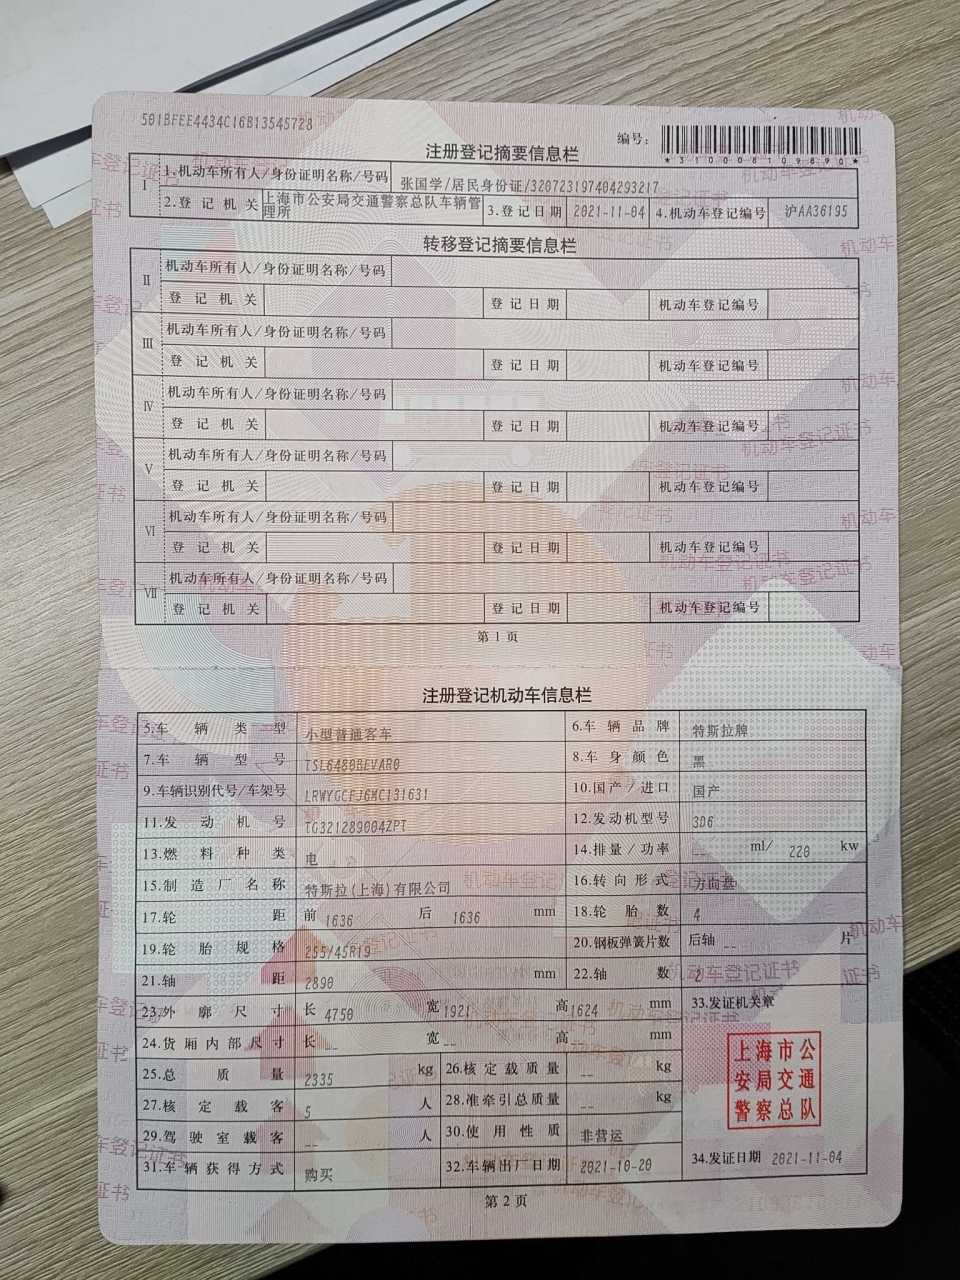 501BFEE4434C16B13545728
编号:
*310008109890*
注册登记摘要信息栏
I
1.机动车所有人/身份证明名称/号码 张国学/居民身份证/320723197404293217
2.登记机关 上海市公安局交通警察总队车辆管理所 3.登记日期 2021-11-04 4.机动车登记编号 沪AA36195
转移登记摘要信息栏
II
机动车所有人/身份证明名称/号码
登记机关 登记日期 机动车登记编号
III
机动车所有人/身份证明名称/号码
登记机关 登记日期 机动车登记编号
IV
机动车所有人/身份证明名称/号码
登记机关 登记日期 机动车登记编号
V
机动车所有人/身份证明名称/号码
登记机关 登记日期 机动车登记编号
VI
机动车所有人/身份证明名称/号码
登记机关 登记日期 机动车登记编号
VII
机动车所有人/身份证明名称/号码
登记机关 登记日期 机动车登记编号
第1页
注册登记机动车信息栏
5.车辆类型 小型普通客车 6.车辆品牌 特斯拉牌
7.车辆型号 TSL6480BEVAR0 8.车身颜色 黑
9.车辆识别代号/车架号 LRWYGCFJ6MC131631 10.国产/进口 国产
11.发动机号 TG321289004ZPT 12.发动机型号 3D6
13.燃料种类 电 14.排量/功率 -- ml/ 220 kw
15.制造厂名称 特斯拉(上海)有限公司 16.转向形式 方向盘
17.轮距 前 1636 后 1636 mm 18.轮胎数 4
19.轮胎规格 255/45R19 20.钢板弹簧片数 后轴 -- 片
21.轴距 2890 mm 22.轴数 2
23.外廓尺寸 长 4750 宽 1921 高 1624 mm 33.发证机关章
24.货厢内部尺寸 长 -- 宽 -- 高 mm
25.总质量 2335 kg 26.核定载质量 -- kg
27.核定载客 5 人 28.准牵引总质量 -- kg
29.驾驶室载客 -- 人 30.使用性质 非营运
31.车辆获得方式 购买 32.车辆出厂日期 2021-10-20 34.发证日期 2021-11-04
上海市公
安局交通
警察总队
第2页